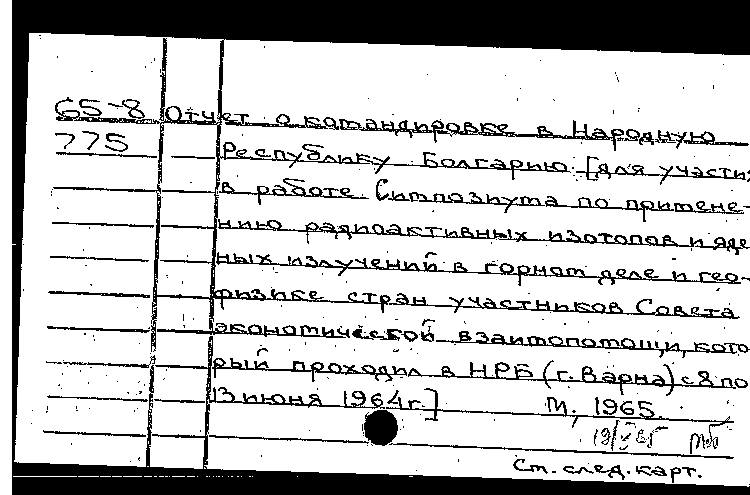 65-8 Отчет о командировке в Народную
775 Республику Болгарию [для участия
в работе Симпозиума по примене-
нию радиоактивных изотопов и яде
ных излучений в горном деле и гео-
физике стран участников Совета
экономической взаимопомощи, кото
рый проходил в НРБ (г. Варна) с 8 по
13 июня 1964г.] М., 1965.
См. след. карт.